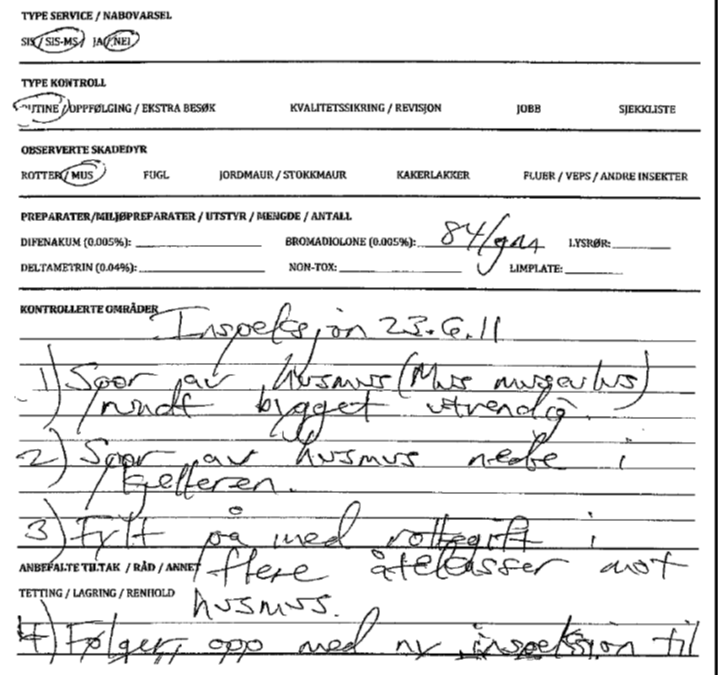 TYPE SERVICE / NABOVARSEL
SIS / SIS-MS / JA / NEI
TYPE KONTROLL
RUTINE / OPPFØLGING / EKSTRA BESØK KVALITETSSIKRING / REVISJON JOBB SJEKKLISTE
OBSERVERTE SKADEDYR
ROTTER / MUS FUGL JORDMAUR / STOKKMAUR KAKERLAKKER FLUER / VEPS / ANDRE INSEKTER
PREPARATER/MILJØPREPARATER / UTSTYR / MENGDE / ANTALL
DIFENAKUM (0.005%): BROMADIOLONE (0.005%): 84/ LYSRØR:
DELTAMETRIN (0.04%): NON-TOX: LIMPLATE:
KONTROLLERTE OMRÅDER
Inspeksjon 23.6.11
1) Spor av husmus (Mus musculus)
rundt bygget utvendig.
2) Spor av husmus nede i
kjelleren.
3) Fylt på med rottegift i
ANBEFALTE TILTAK / RÅD / ANNET flere åtekasser mot
TETTING / LAGRING / RENHOLD husmus.
4) Følger opp med ny inspeksjon til